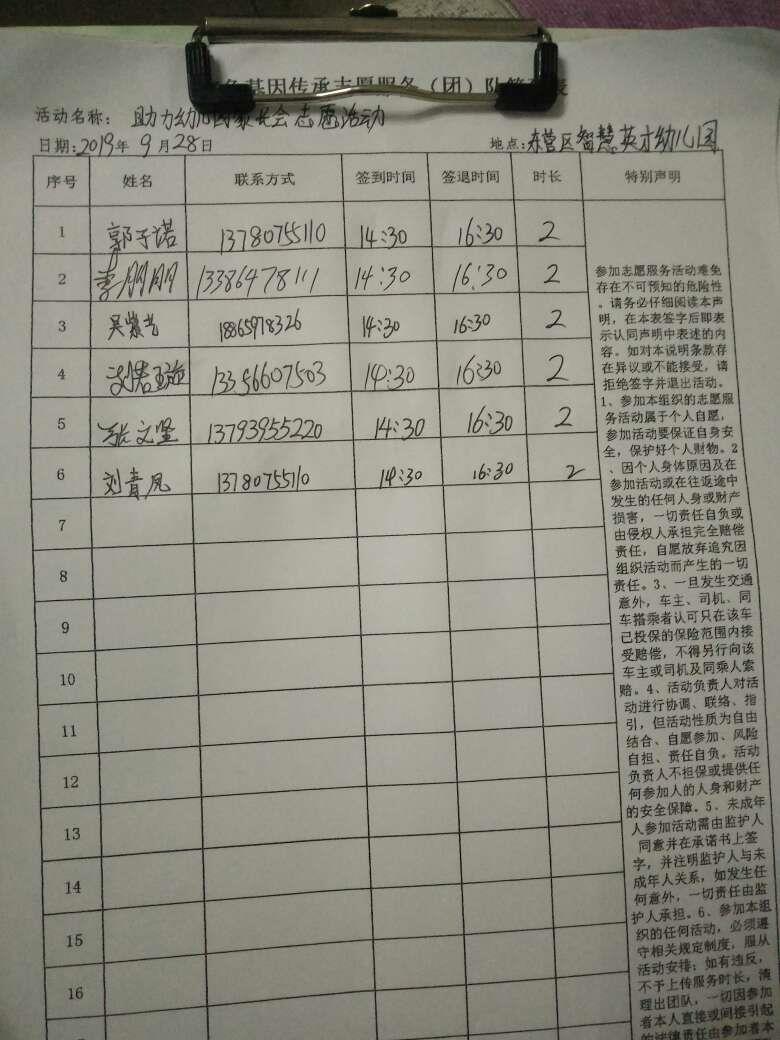 基因传承志愿服务（团）队签到表
活动名称： 助力幼儿园家长会志愿活动
日期：2019年 9月28日 地点：东营区智慧英才幼儿园
序号 姓名 联系方式 签到时间 签退时间 时长 特别声明
1 郭子诺 13780755110 14:30 16:30 2
2 李朋朋 13386478111 14:30 16:30 2
3 吴紫艺 18865978326 14:30 16:30 2
4 13356607503 14:30 16:30 2
5 张文坚 13793955220 14:30 16:30 2
6 刘青凤 13780755110 14:30 16:30 2
7
8
9
10
11
12
13
14
15
16
参加志愿服务活动难免
存在不可预知的危险性
。请务必仔细阅读本声
明，在本表签字后即表
示认同声明中表述的内
容。如对本说明条款存
在异议或不能接受，请
拒绝签字并退出活动。
1、参加本组织的志愿服
务活动属于个人自愿，
参加活动要保证自身安
全，保护好个人财物。2
、因个人身体原因及在
参加活动或在往返途中
发生的任何人身或财产
损害，一切责任自负或
由侵权人承担完全赔偿
责任，自愿放弃追究因
组织活动而产生的一切
责任。3、一旦发生交通
意外，车主、司机、同
车搭乘者认可只在该车
己投保的保险范围内接
受赔偿，不得另行向该
车主或司机及同乘人索
赔。4、活动负责人对活
动进行协调、联络、指
引，但活动性质为自由
结合、自愿参加、风险
自担、责任自负。活动
负责人不担保或提供任
何参加人的人身和财产
的安全保障。5、未成年
人参加活动需由监护人
同意并在承诺书上签
字，并注明监护人与未
成年人关系，如发生任
何意外，一切责任由监
护人承担。6、参加本组
织的任何活动，必须遵
守相关规定制度，服从
活动安排；如有违反，
不予上传服务时长，清
理出团队，一切因参加
者本人直接或间接引起
的法律责任由参加者本